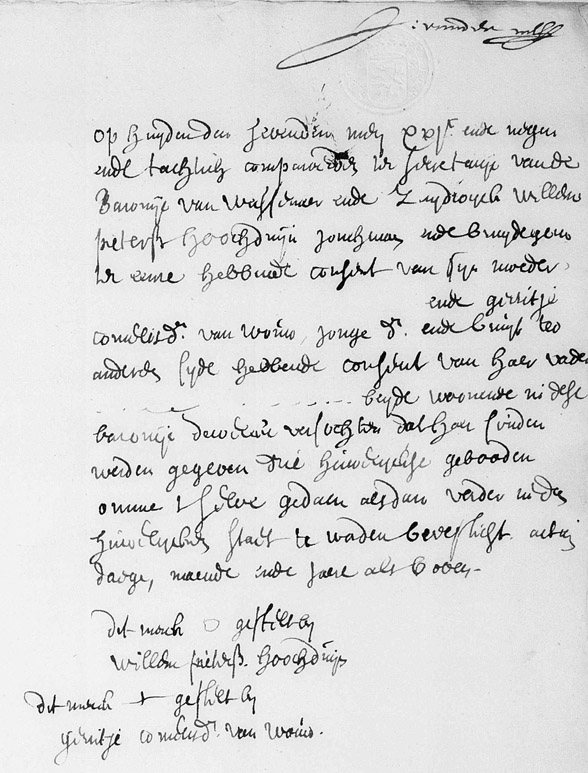 op huyden den sevenden meij xvjc ende negen
ende tachtich compareerden ter secretarije van de
Baronije van Wassenaer ende Zuydwyck Willem
pieterss Hoochduijn jonchman ende bruydegom
ter eenre hebbende consent van sijn moeder
ende gerritje
cornelisdr. van wouw, jonge dr. ende bruyt ter
anderen syde hebbende consent van haer vader
beyde woonende in dese
baronije dewelcke versochten dat haer souden
werden gegeven drie huwelyckse gebooden
omme t selve gedaen alsdan verder in den
huwelycken staet te worden bevesticht. actum
daege, maende ende jaere als boven
dit merck gestelt by
willem pieterss. Hoochduijn
dit merck + gestelt by
gerritje cornelisdr. van wouw.